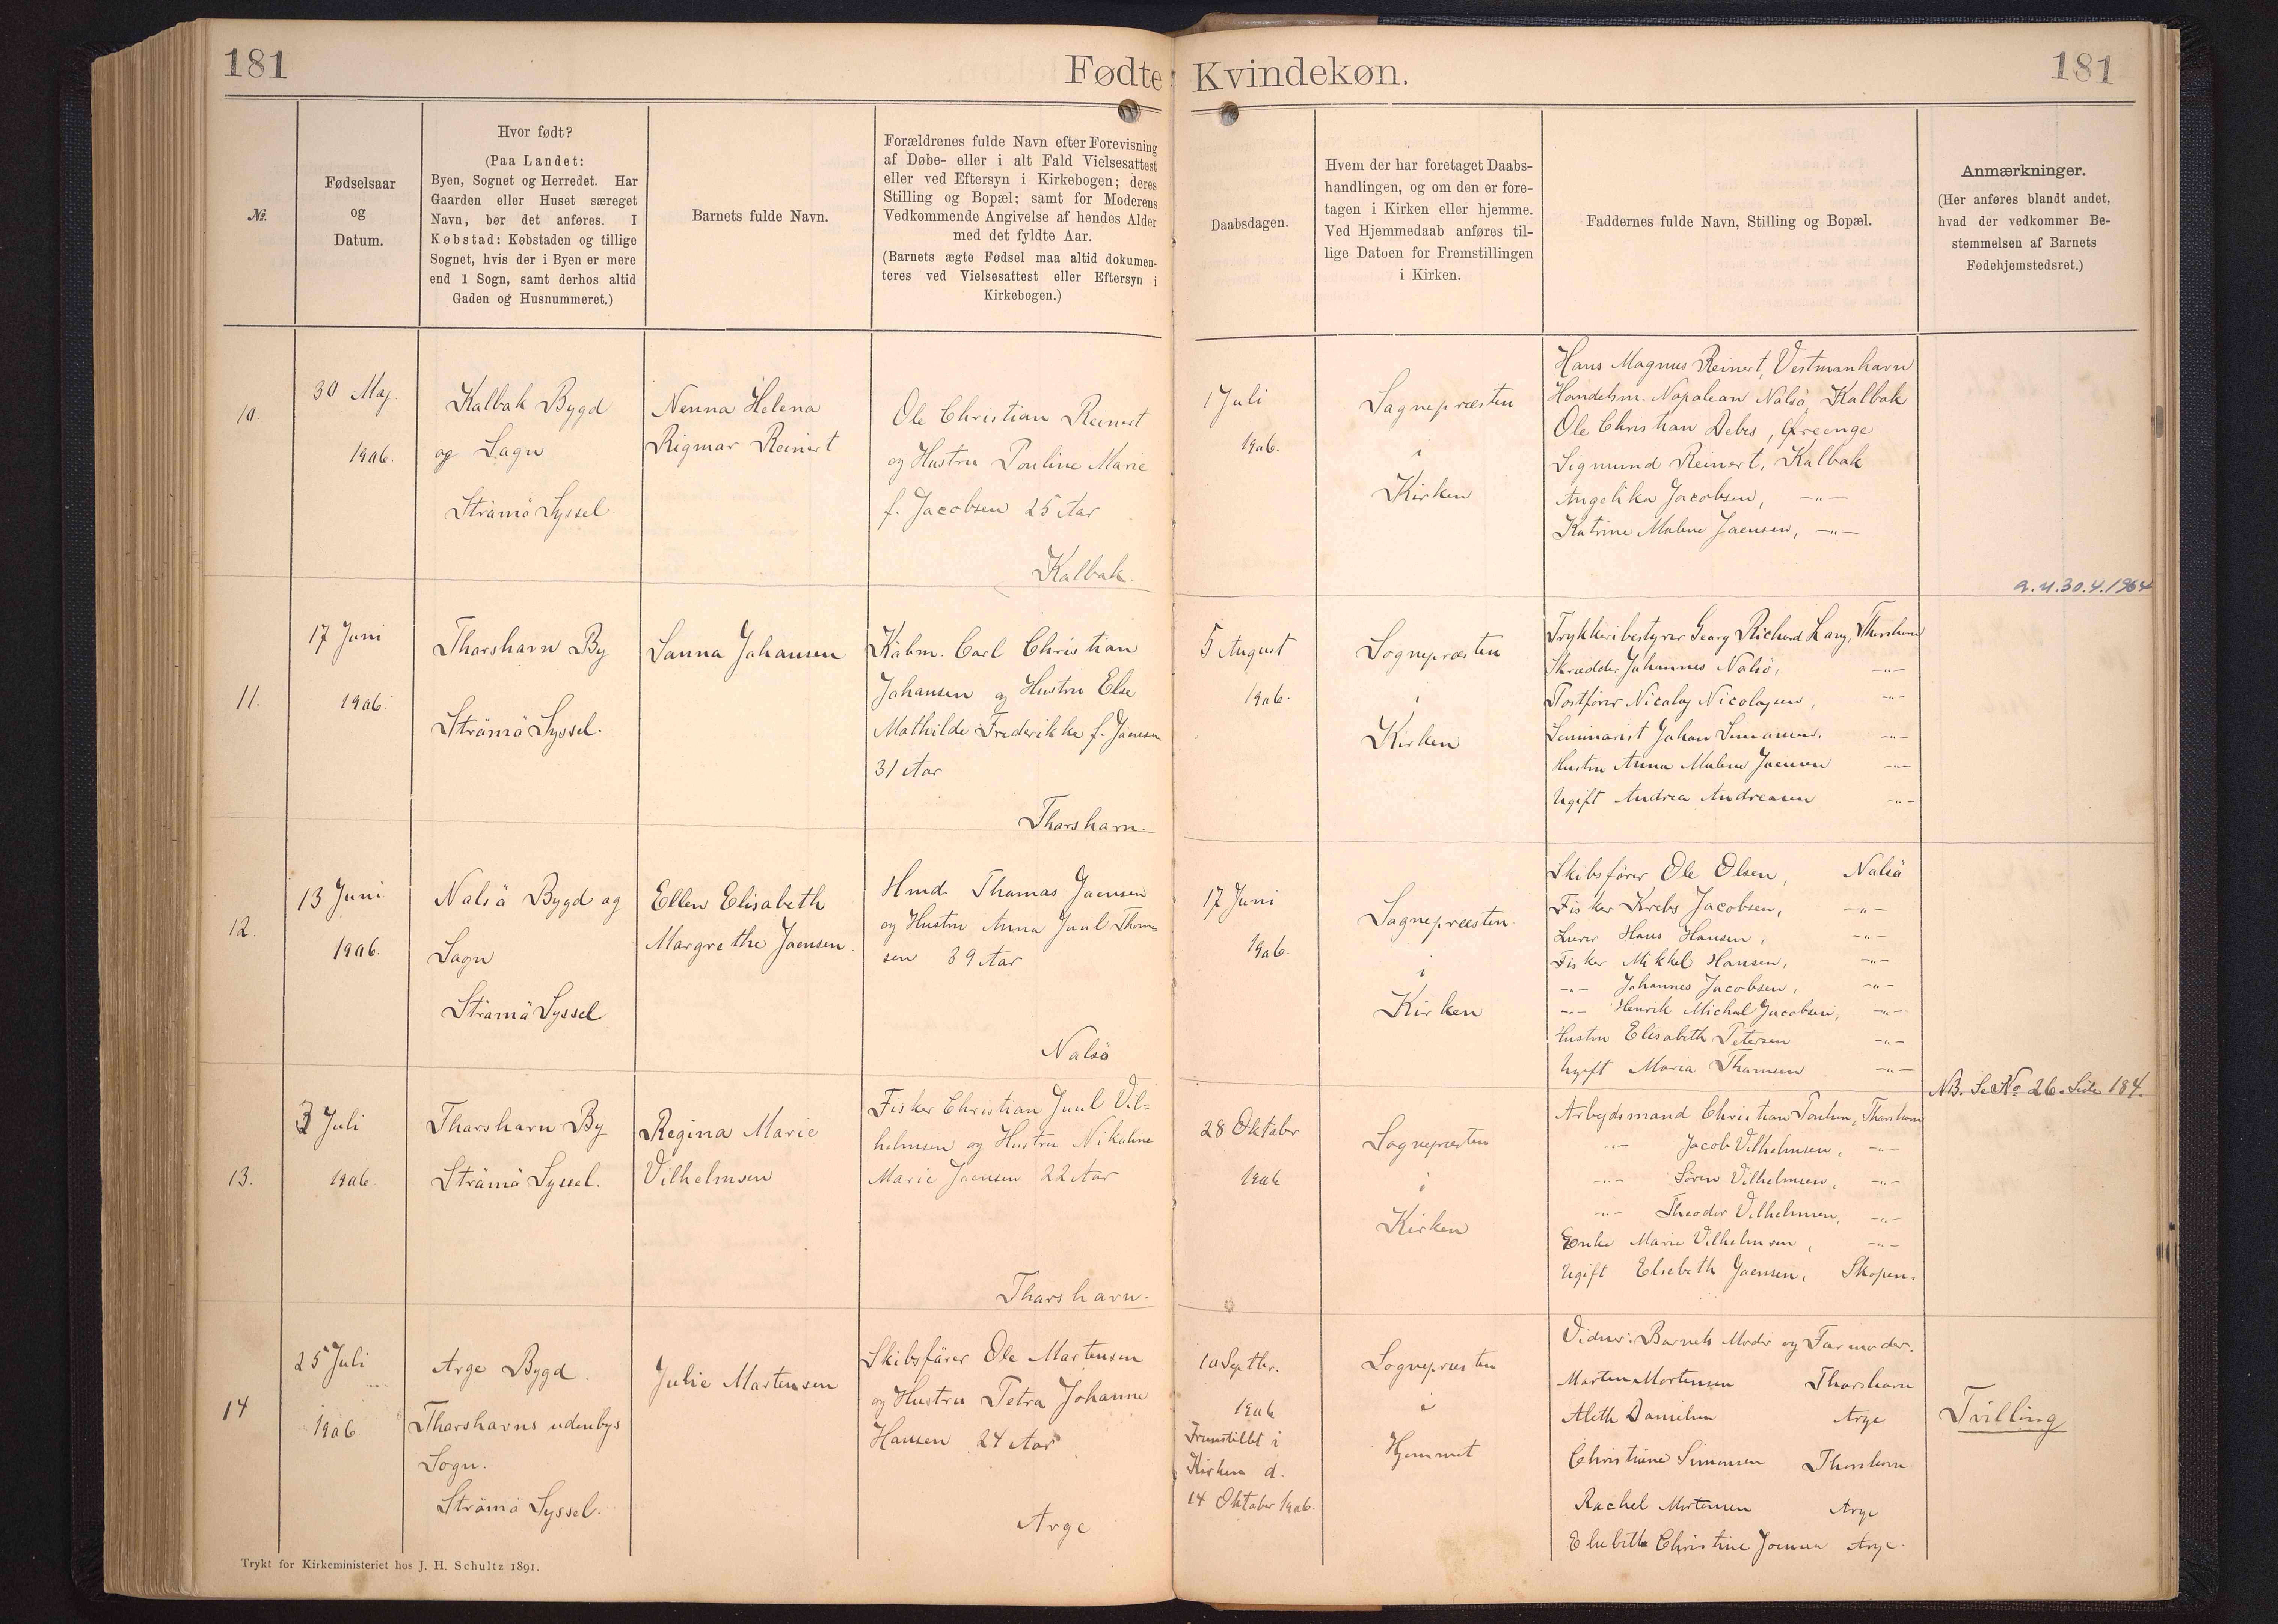 181
Fødte Kvindekøn.
181
№.
Fødselsaar
og
Datum.
Hvor født?
(Paa Landet:
Byen, Sognet og Herredet. Har
Gaarden eller Huset særeget
Navn, bør det anføres. I
Købstad: Købstaden og tillige
Sognet, hvis der i Byen er mere
end 1 Sogn, samt derhos altid
Gaden og Husnummeret.)
Barnets fulde Navn.
Forældrenes fulde Navn efter Forevisning
af Døbe- eller i alt Fald Vielsesattest
eller ved Eftersyn i Kirkebogen; deres
Stilling og Bopæl; samt for Moderens
Vedkommende Angivelse af hendes Alder
med det fyldte Aar.
(Barnets ægte Fødsel maa altid dokumen-
teres ved Vielsesattest eller Eftersyn i
Kirkebogen.)
Daabsdagen.
Hvem der har foretaget Daabs-
handlingen, og om den er fore-
tagen i Kirken eller hjemme.
Ved Hjemmedaab anføres til-
lige Datoen for Fremstillingen
i Kirken.
Faddernes fulde Navn, Stilling og Bopæl.
Anmærkninger.
(Her anføres blandt andet,
hvad der vedkommer Be-
stemmelsen af Barnets
Fødehjemstedsret.)
10.
30 Maj
1906.
Kalbak Bygd
og Sogn
Strömö Syssel
Nenna Helena
Rigmor Reinert
Ole Christian Reinert
og Hustru Pouline Marie
f. Jacobsen 25 Aar
Kalbak.
1 Juli
1906.
Sognepræsten
i
Kirken
Hans Magnus Reinert, Vestmanhavn
Handelsm. Napolean Nolsö, Kalbak
Ole Christian Debes,
Sigmund Reinert, Kalbak
Angelika Jacobsen, -"-
Katrine Malene Joensen, -"-
a.u.30.4.1964
11.
17 Juni
1906.
Thorshavn By
Strömö Syssel.
Sanna Johansen
Købm. Carl Christian
Johansen og Hustru Else
Mathilde Frederikke f. Joensen
31 Aar
Thorshavn.
5 August
1906.
Sognepræsten
i
Kirken
Trykkeribestyrer Georg Richard Long, Thorshavn
Skrædder Johannes Nolsö, -"-
Postfører Nicolaj Nicolajsen, -"-
Seminarist Johan Simonsen. -"-
Hustru Anna Malene Joensen -"-
Ugift Andrea Andreasen -"-
12.
13 Juni
1906.
Nolsö Bygd og
Sogn
Strömö Syssel
Ellen Elisabeth
Margrethe Joensen.
Hmd. Thomas Joensen
og Hustru Anna Juul Thom-
sen 39 Aar
Nolsö
17 Juni
1906.
Sognepræsten
i
Kirken
Skibsfører Ole Olsen, Nolsö
Fisker Krebs Jacobsen, -"-
Lærer Hans Hansen, -"-
Fisker Mikkel Hansen, -"-
-"- Johannes Jacobsen, -"-
-"- Henrik Michal Jacobsen, -"-
Hustru Elisabeth Petersen -"-
Ugift Maria Thomsen -"-
NB. Se No 26. Side 184.
13.
3 Juli
1906
Thorshavn By
Strömö Syssel.
Regina Marie
Vilhelmsen
Fisker Christian Juul Vil-
helmsen og Hustru Nikoline
Marie Joensen 22 Aar
Thorshavn.
28 Oktober
1906
Sognepræsten
i
Kirken
Arbejdsmand Christian Poulsen, Thorshavn
-"- Jacob Vilhelmsen, -"-
-"- Sören Vilhelmsen, -"-
-"- Theodor Vilhelmsen, -"-
Enke Marie Vilhelmsen, -"-
Ugift Elsebeth Joensen, Skopen.
14
25 Juli
1906.
Arge Bygd.
Thorshavns udenbys
Sogn.
Strömö Syssel.
Julie Mortensen
Skibsfører Ole Mortensen
og Hustru Petra Johanne
Hansen 24 Aar
Arge
10 Septbr.
1906
Fremstillet i
Kirken d.
14 Oktober 1906.
Sognepræsten
i
Hjemmet
Vidner: Barnets Moder og Farmoder.
Morten Mortensen Thorshavn
Aleth Danielsen Arge
Christine Simonsen Thorshavn
Rachel Mortensen Arge
Elsebeth Christine Joensen Arge.
Tvilling
Trykt for Kirkeministeriet hos J. H. Schultz 1891.